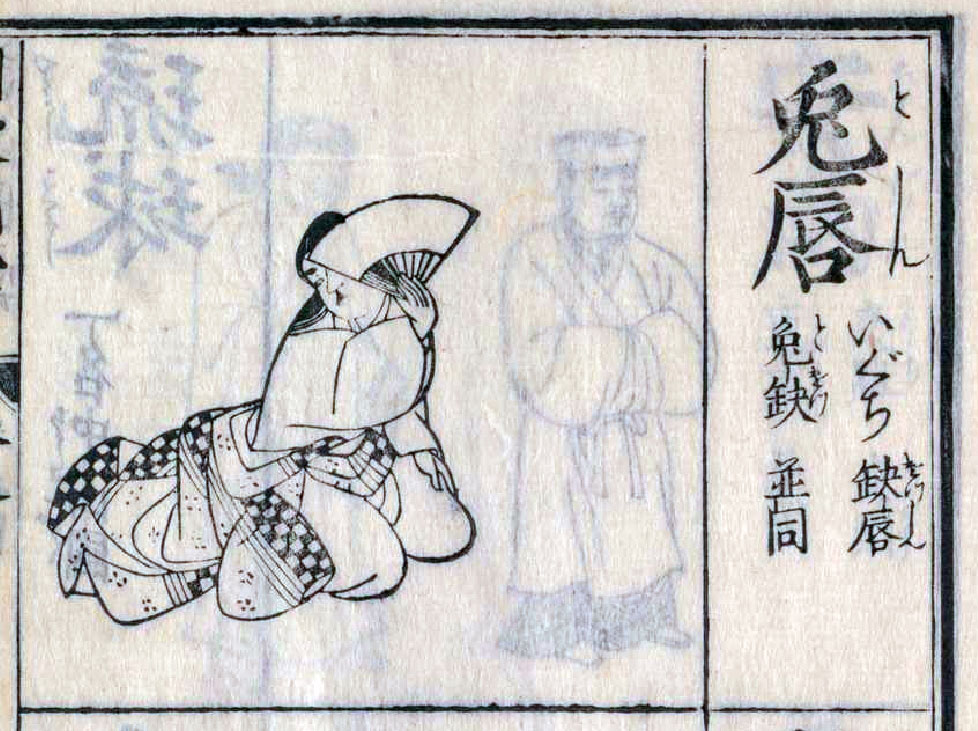 兎唇
としん
いぐち 缺唇
けつしん
兎缺 並同
とけつ